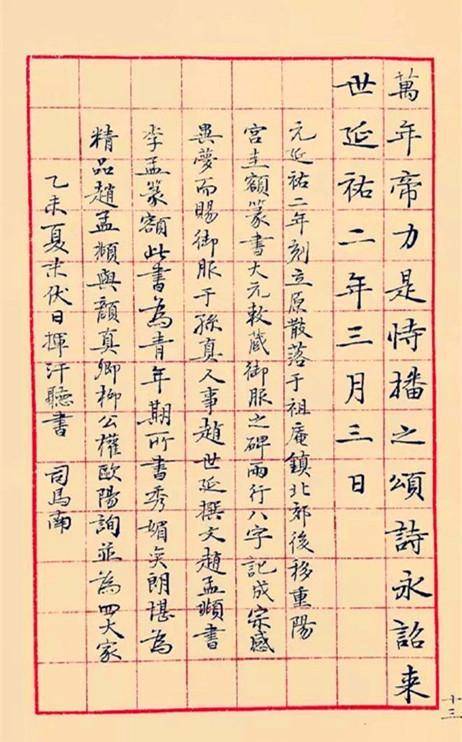 萬年帝力是恃播之頌詩永詔来
世延祐二年三月三日
元延祐二年刻立原散落于祖庵鎮北郊後移重陽
宫圭額篆書大元敕藏御服之碑兩行八字記成宗感
異夢而賜御服于孫真人事趙世延撰文趙孟頫書
李孟篆額此書為青年期所書秀媚爽朗堪為
精品趙孟頫與顏真卿柳公權歐陽詢並為四大家
乙未夏末伏日揮汗聽書 司馬南
十三